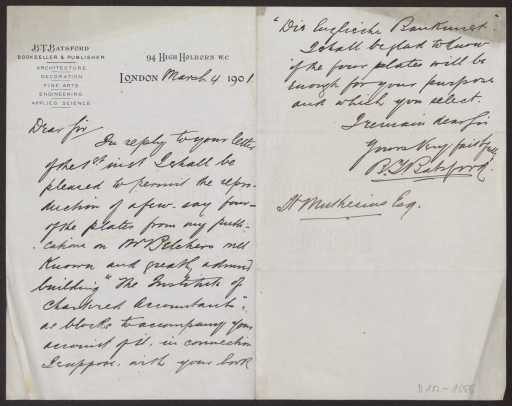 B.T. BATSFORD
BOOKSELLER & PUBLISHER
ARCHITECTURE
DECORATION
FINE ARTS
ENGINEERING
APPLIED SCIENCE
94 HIGH HOLBORN W.C
LONDON March 4 1901.
Dear Sir
In reply to your letter
of the 1st inst I shall be
pleased to permit the repro-
duction of a few - say four -
of the plates from my publi-
cation on Mr Belchers well
known and greatly admired
building "The Institute of
Chartered Accountants",
as blocks to accompany your
account of it. in connection
I suppose. with your book
"Die Englische Baukunst".
I shall be glad to know
if the four plates will be
enough for your purpose
and which you select.
I remain dear Sir
Yours very faithfully
B.T. Batsford.
H Muthesius Esq.